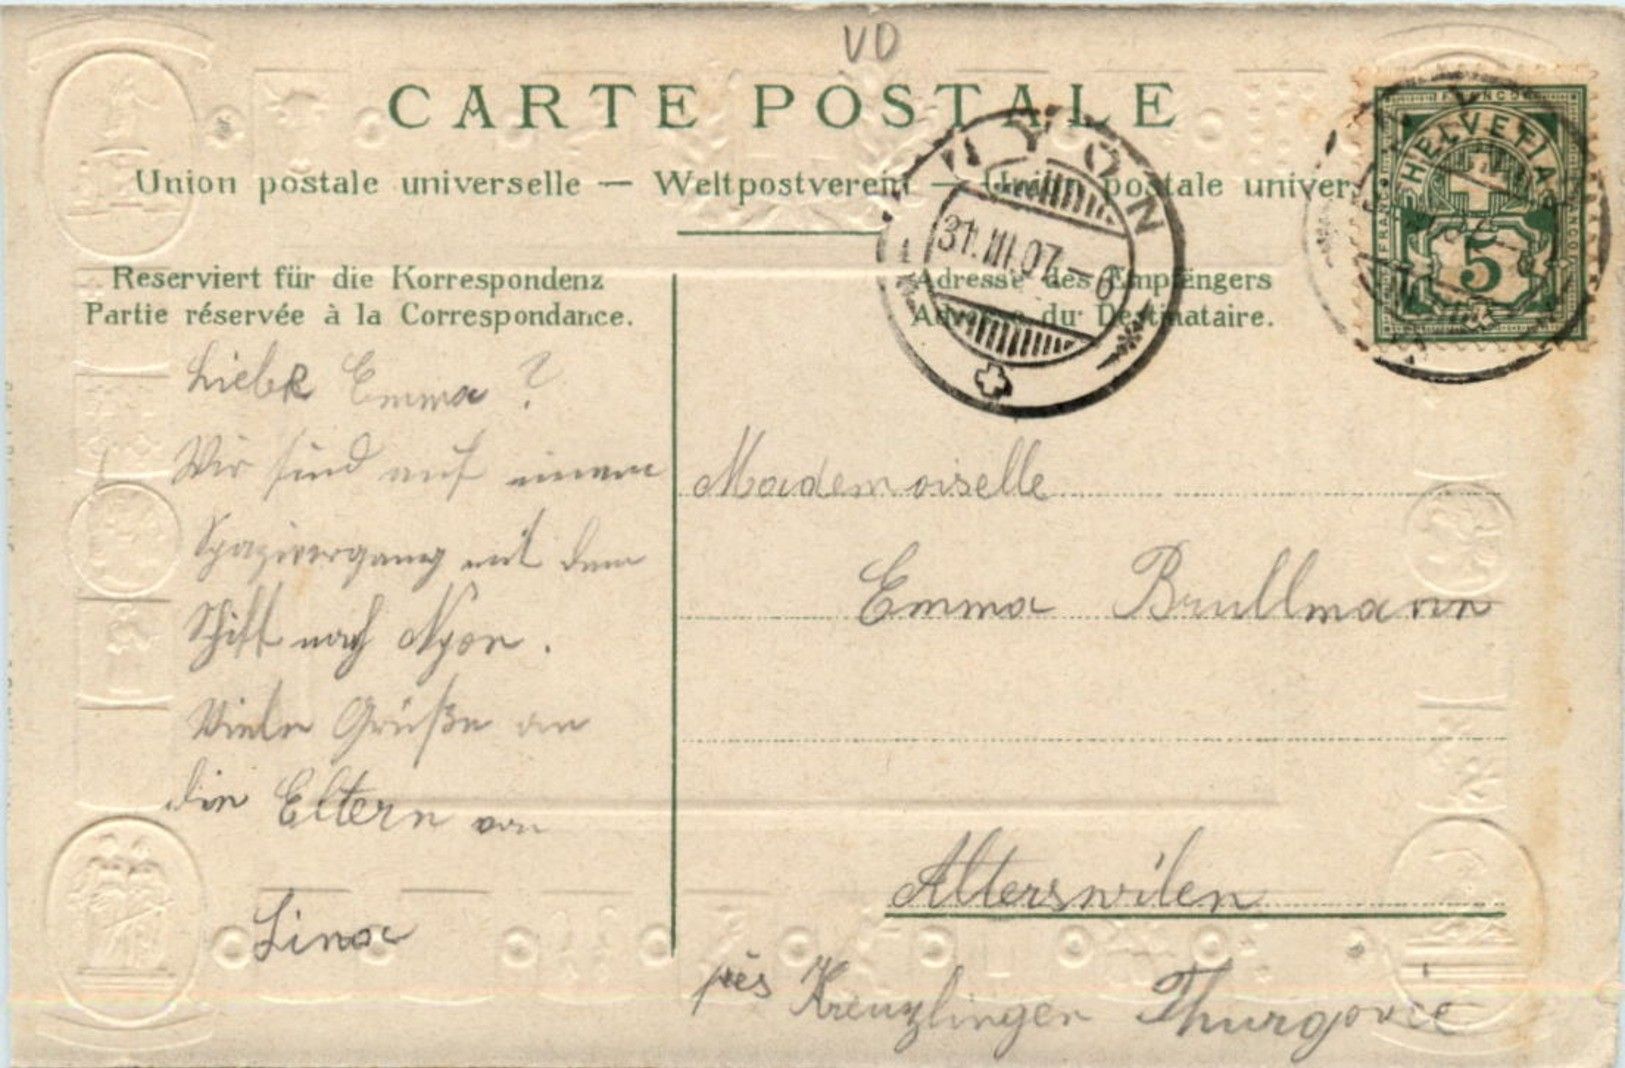 VD
CARTE POSTALE
Union postale universelle — Weltpostverein — Union postale univer
NYON
31.III.07.—6
FRANCO
HELVETIA
FRANCO
FRANCO
5
Reserviert für die Korrespondenz
Partie réservée à la Correspondance.
Adresse des Empfängers
Adresse du Destinataire.
Liebe Emma?
Wir sind auf einem
Spaziergang mit dem
Schiff nach Nyon.
Viele Grüße an
die Eltern von
Lina
Mademoiselle
Emma Brullmann
Alterswilen
près Kreuzlingen Thurgovie